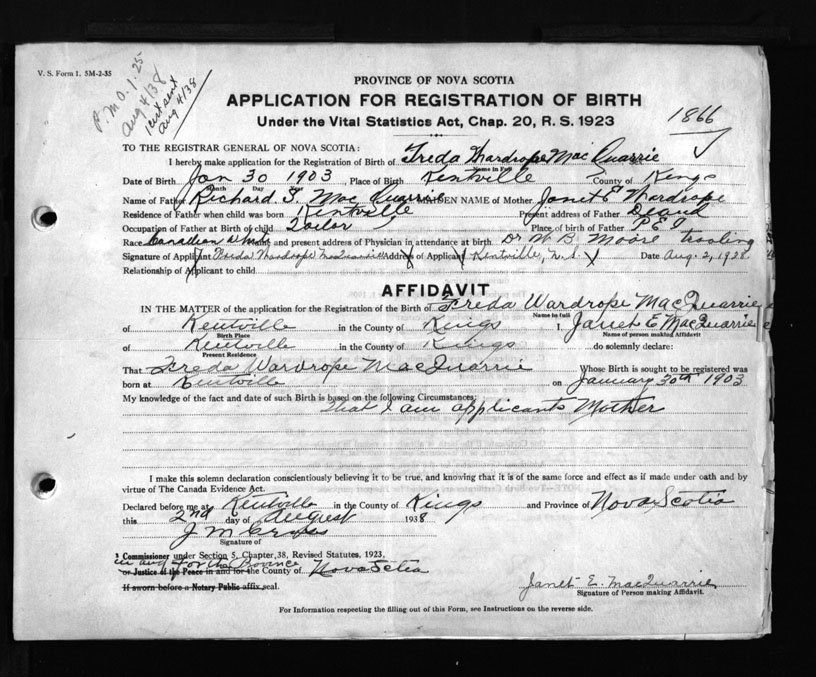 V. S. Form 1. 5M-2-35
P.M.O. 1.25
Aug 4/38
1 cert sent
Aug 4/38
PROVINCE OF NOVA SCOTIA
APPLICATION FOR REGISTRATION OF BIRTH
Under the Vital Statistics Act, Chap. 20, R. S. 1923
1866
TO THE REGISTRAR GENERAL OF NOVA SCOTIA:
I hereby make application for the Registration of Birth of Freda Wardrope MacQuarrie
Name in Full
Date of Birth Jan 30 1903, Place of Birth Kentville County of Kings
Month Day Year
Name of Father Richard S. MacQuarrie MAIDEN NAME of Mother Janet E Wardrope
Residence of Father when child was born Kentville Present address of Father Dead
Occupation of Father at Birth of child Tailor Place of birth of Father P E I
Race Canadian White and present address of Physician in attendance at birth Dr W. B. Moore
Signature of Applicant Freda Wardrope MacQuarrie Address of Applicant Kentville, N.S. Date Aug. 2, 1938
Relationship of Applicant to child
AFFIDAVIT
IN THE MATTER of the application for the Registration of the Birth of Freda Wardrope MacQuarrie
Name in full
of Kentville in the County of Kings I, Janet E MacQuarrie
Birth Place Name of person making Affidavit
of Kentville in the County of Kings do solemnly declare:
Present Residence
That Freda Wardrope MacQuarrie Whose Birth is sought to be registered was
born at Kentville on January 30th 1903
My knowledge of the fact and date of such Birth is based on the following Circumstances:
That I am applicants Mother
I make this solemn declaration conscientiously believing it to be true, and knowing that it is of the same force and effect as if made under oath and by
virtue of The Canada Evidence Act.
Declared before me at Kentville in the County of Kings and Province of Nova Scotia
this 2nd day of August 1938
J M
Signature of
Commissioner under Section 5, Chapter 38, Revised Statutes, 1923,
in and for the Province
or Justice of the Peace in and for the County of Nova Scotia
If sworn before a Notary Public affix seal.
Janet E. MacQuarrie
Signature of Person making Affidavit.
For Information respecting the filling out of this Form, see Instructions on the reverse side.